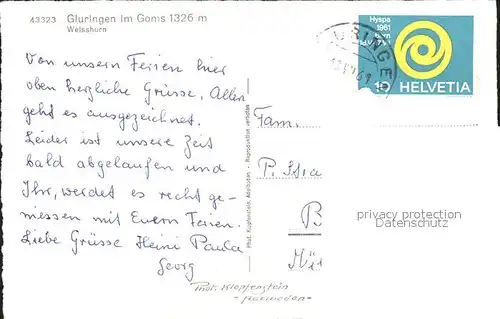 43323 Gluringen im Goms 1326 m
Weisshorn
Von unsern Ferien hier
oben herzliche Grüsse. Allen
geht es ausgezeichnet.
Leider ist unsere Zeit
bald abgelaufen und
Ihr, werdet es recht ge-
niessen mit Euern Ferien.
Liebe Grüsse Heini Paula
Georg
Phot. Klopfenstein, Adelboden - Reproduktion verboten
Hyspa
1961
Bern
10 HELVETIA
Fam.
P.
B
privacy protection
Datenschutz
Phot. Klopfenstein
- Adelboden -